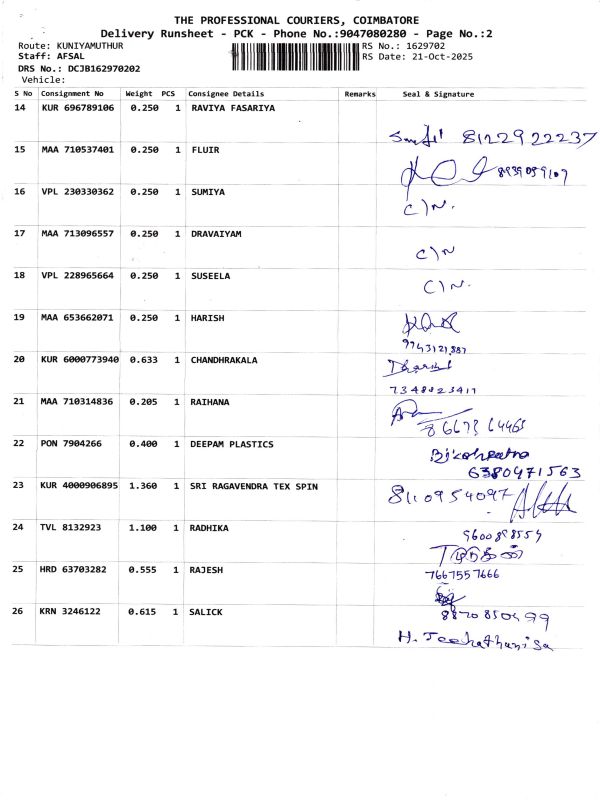 THE PROFESSIONAL COURIERS, COIMBATORE
Delivery Runsheet - PCK - Phone No.:9047080280 - Page No.:2
Route: KUNIYAMUTHUR RS No.: 1629702
Staff: AFSAL RS Date: 21-Oct-2025
DRS No.: DCJB162970202
Vehicle:
S No Consignment No Weight PCS Consignee Details Remarks Seal & Signature
14 KUR 696789106 0.250 1 RAVIYA FASARIYA
8122922237
15 MAA 710537401 0.250 1 FLUIR
8939059107
16 VPL 230330362 0.250 1 SUMIYA
C)N.
17 MAA 713096557 0.250 1 DRAVAIYAM
C)N
18 VPL 228965664 0.250 1 SUSEELA
C)N.
19 MAA 653662071 0.250 1 HARISH
20 KUR 6000773940 0.633 1 CHANDHRAKALA
7348823411
21 MAA 710314836 0.205 1 RAIHANA
22 PON 7904266 0.400 1 DEEPAM PLASTICS
6380471563
23 KUR 4000906895 1.360 1 SRI RAGAVENDRA TEX SPIN
8110954097
24 TVL 8132923 1.100 1 RADHIKA
9600898554
25 HRD 63703282 0.555 1 RAJESH
7667557666
26 KRN 3246122 0.615 1 SALICK
8870850499
H.